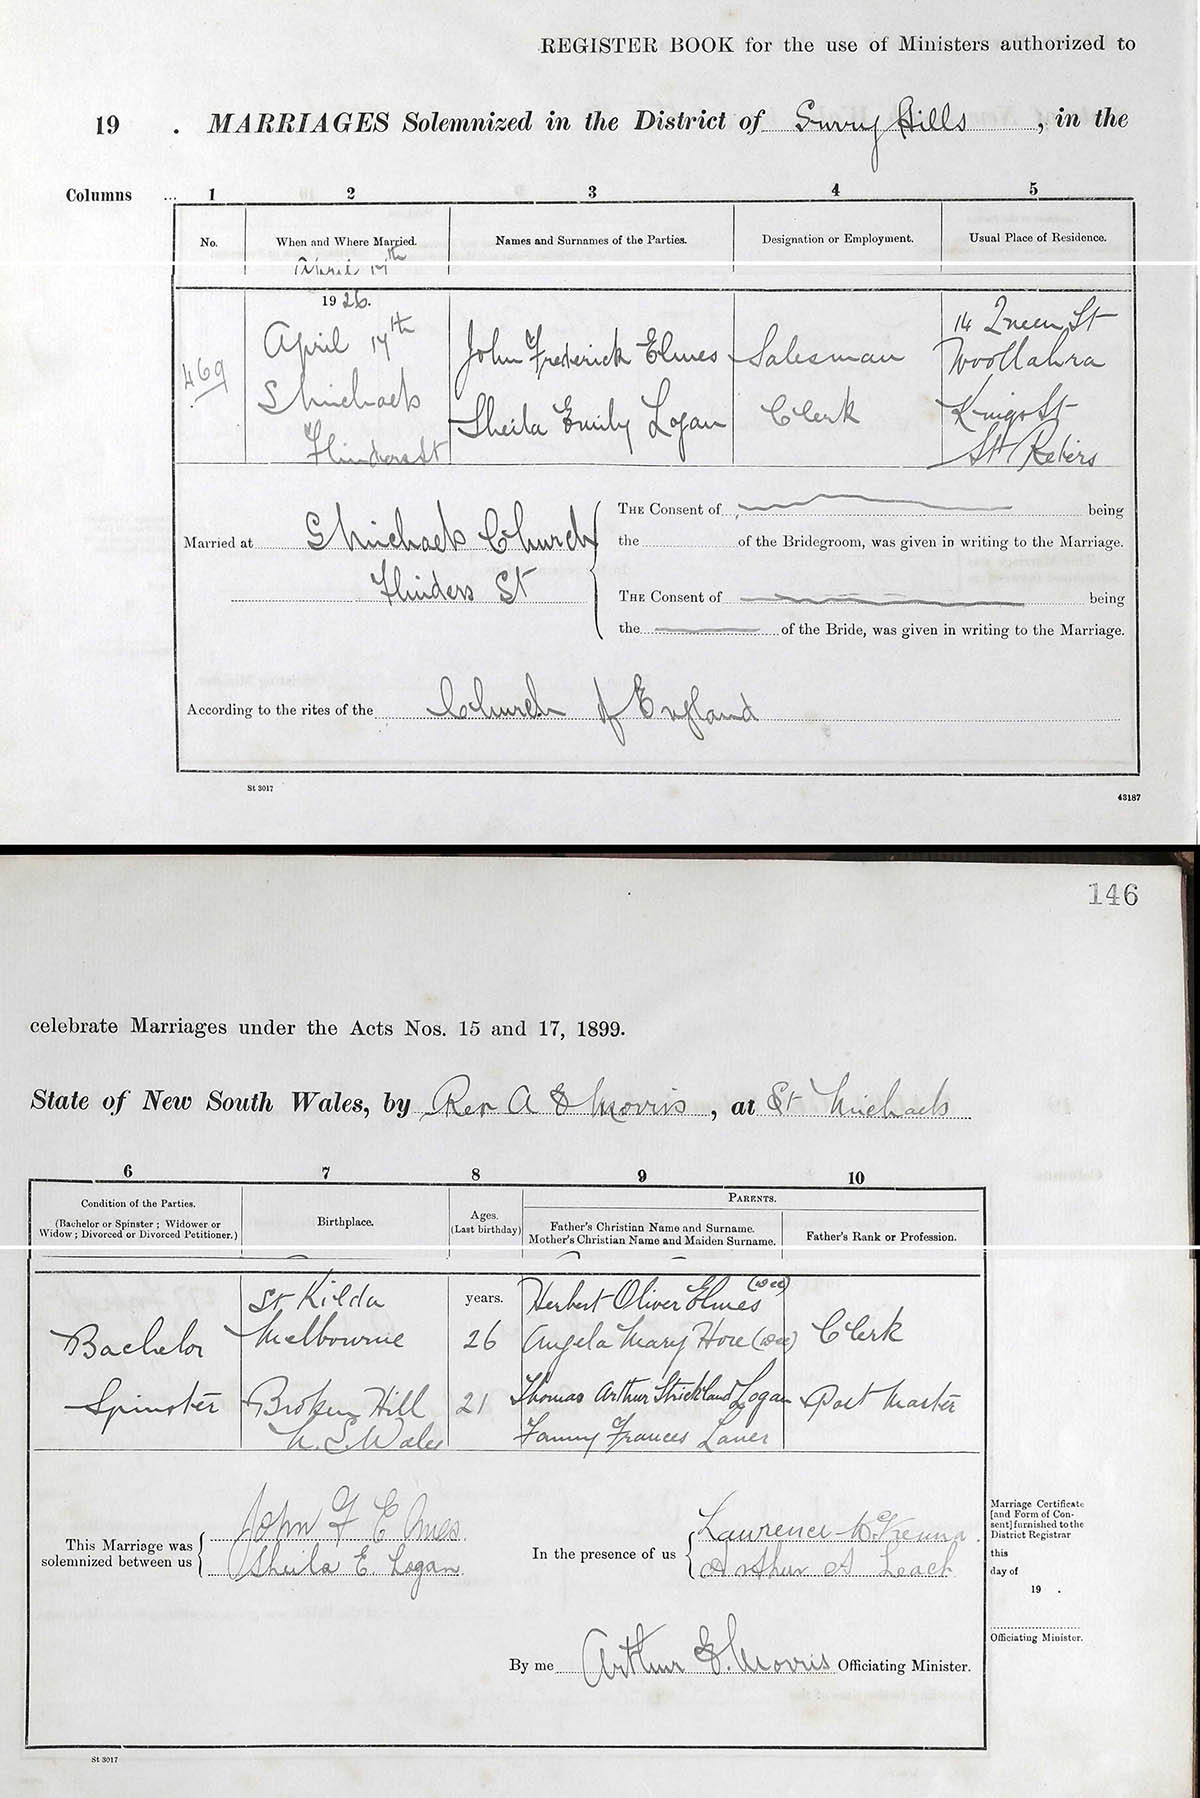 REGISTER BOOK for the use of Ministers authorized to
19 . MARRIAGES Solemnized in the District of Surry Hills, in the
Columns ... 1 2 3 4 5
No. When and Where Married. Names and Surnames of the Parties. Designation or Employment. Usual Place of Residence.
April 17th
1926.
469
April 17th
S Michaels
Flinders St
John Frederick Elmes
Sheila Emily Logan
Salesman
Clerk
14 Queen St
Woollahra
Kings St
St Peters
Married at S Michaels Church
Flinders St
THE Consent of being
the of the Bridegroom, was given in writing to the Marriage.
THE Consent of being
the of the Bride, was given in writing to the Marriage.
According to the rites of the Church of England
St 3017
43187
146
celebrate Marriages under the Acts Nos. 15 and 17, 1899.
State of New South Wales, by Rev A E Morris, at St Michaels
6 7 8 9 10
Condition of the Parties.
(Bachelor or Spinster ; Widower or
Widow ; Divorced or Divorced Petitioner.)
Birthplace.
Ages.
(Last birthday)
PARENTS.
Father's Christian Name and Surname.
Mother's Christian Name and Maiden Surname.
Father's Rank or Profession.
Bachelor
Spinster
St Kilda
Melbourne
Broken Hill
N. S. Wales
years.
26
21
Herbert Oliver Elmes (dec)
Angela Mary Hore (dec)
Thomas Arthur Strickland Logan
Fanny Frances
Clerk
Post Master
This Marriage was
solemnized between us
John F Elmes
Sheila E. Logan
In the presence of us
Lawrence McKenna
Arthur A Leach
By me Arthur E. Morris Officiating Minister.
Marriage Certificate
[and Form of Con-
sent] furnished to the
District Registrar
this
day of
19 .
Officiating Minister.
St 3017